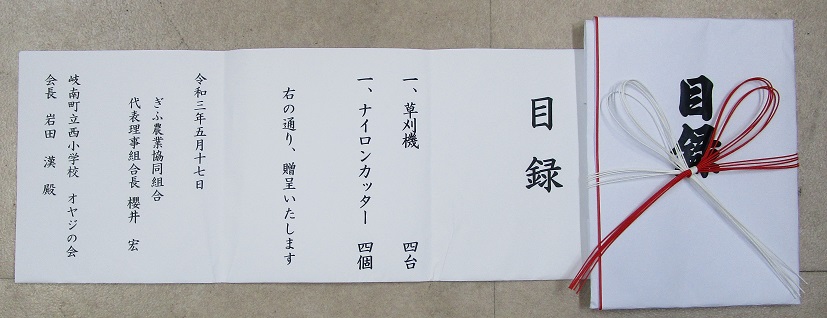 目録
目録
一、草刈機 四台
一、ナイロンカッター 四個
右の通り、贈呈いたします
令和三年五月十七日
ぎふ農業協同組合
代表理事組合長 櫻井 宏
岐南町立西小学校 オヤジの会
会長 岩田 漢 殿